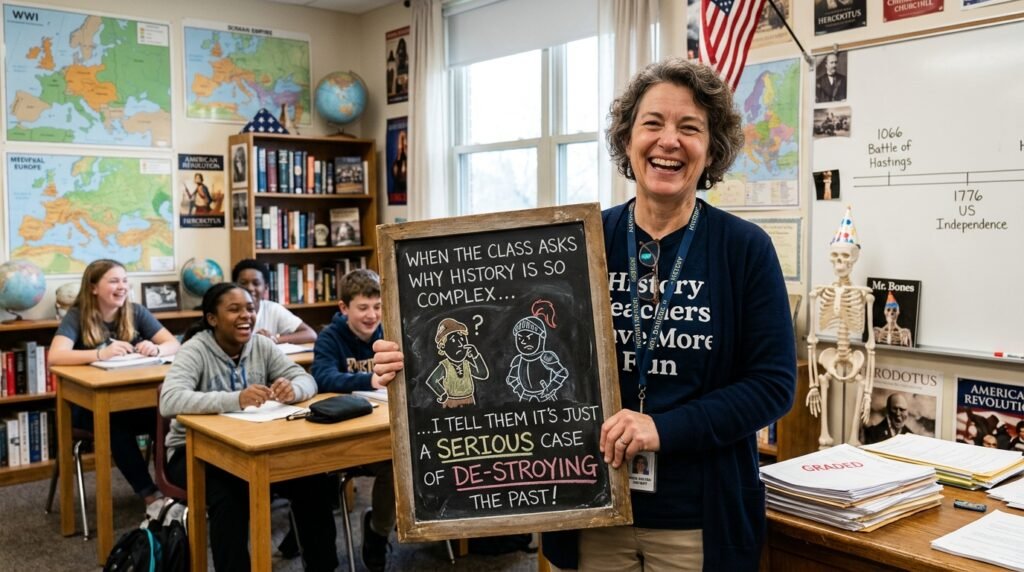 WWI
EUROPE
AMERICAN
REVOLUTION
CHURCHILL
1066
Battle of
Hastings
1776
US
Independence
WHEN THE CLASS ASKS
WHY HISTORY IS SO
COMPLEX...
?
...I TELL THEM IT'S JUST
A SERIOUS CASE
OF DE-STROYING
THE PAST!
History
eachers
ve More
Fun
HISTORY
Mr. Bones
RODOTUS
AMERICAN
REVOLUTION
GRADED